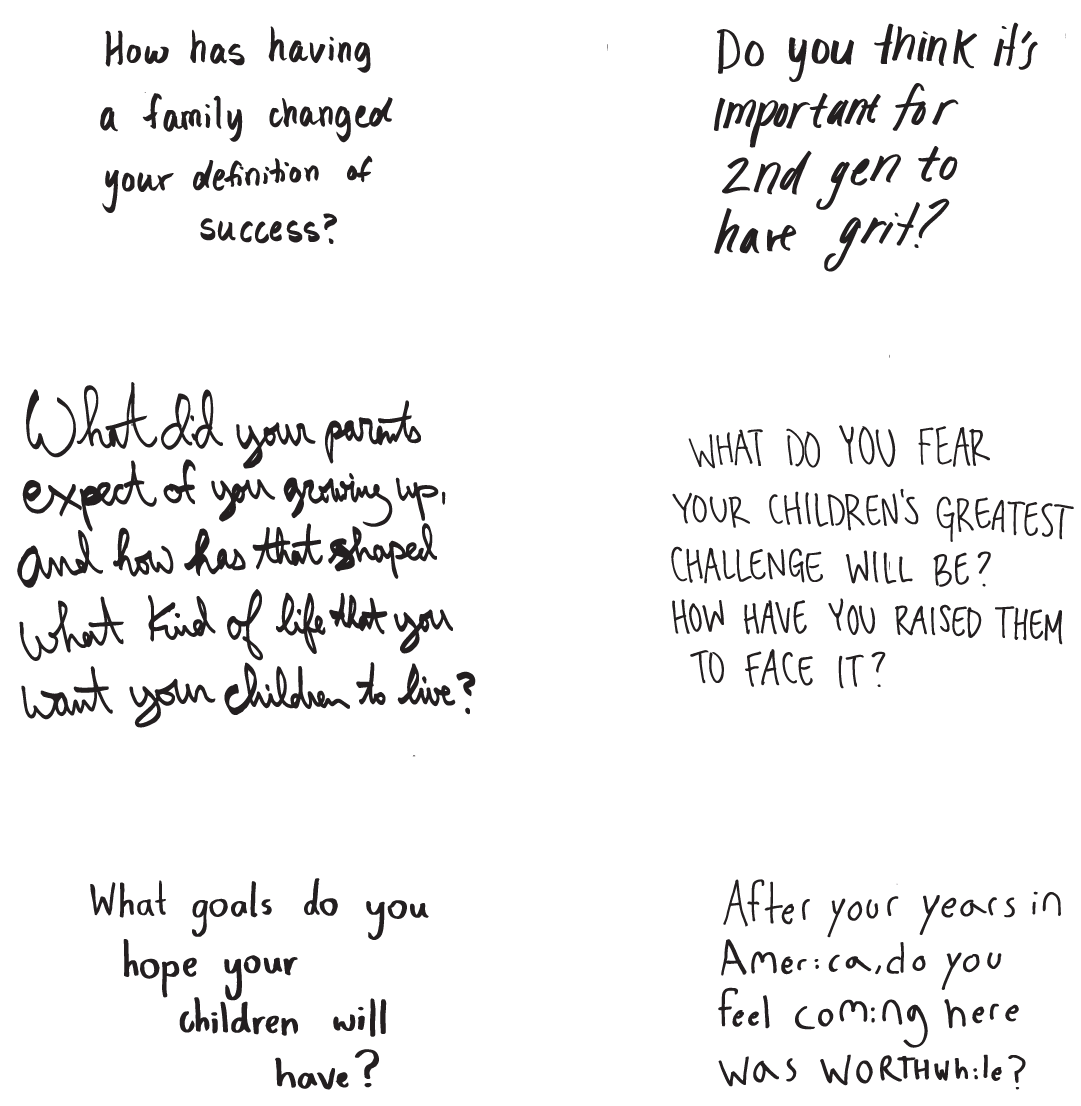 How has having
a family changed
your definition of
success?
Do you think it's
important for
2nd gen to
have grit?
What did your parents
expect of you growing up,
and how has that shaped
what kind of life that you
want your children to live?
WHAT DO YOU FEAR
YOUR CHILDREN'S GREATEST
CHALLENGE WILL BE?
HOW HAVE YOU RAISED THEM
TO FACE IT?
What goals do you
hope your
children will
have?
After your years in
America, do you
feel coming here
was WORTHwhile?